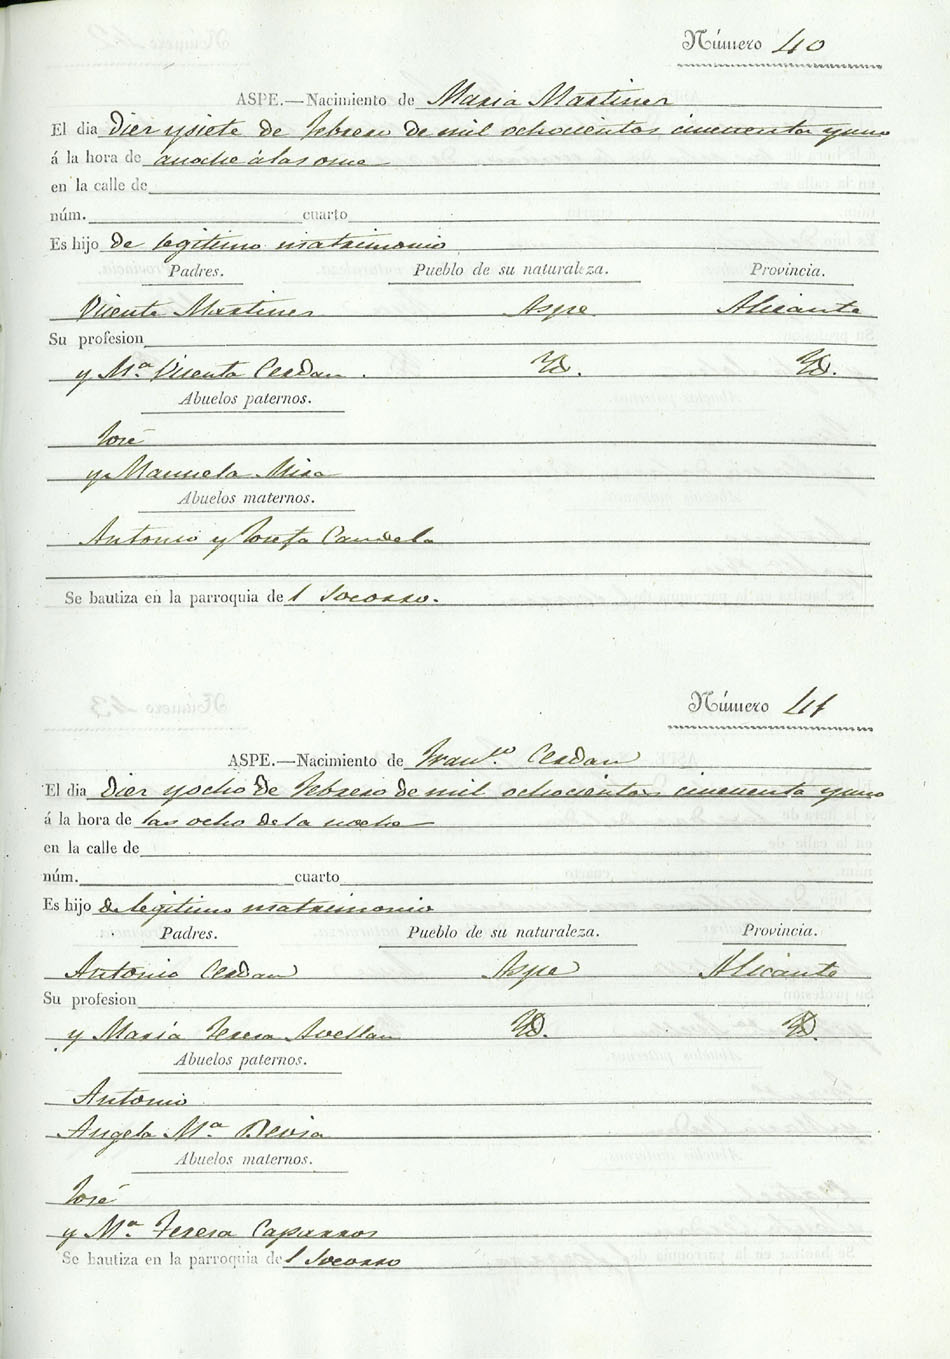 Número 40
ASPE.—Nacimiento de Maria Martinez
El dia diez y siete de febrero de mil ochocientos cincuenta y uno
á la hora de anoche á las once
en la calle de
núm. cuarto
Es hijo de legitimo matrimonio
Padres. Pueblo de su naturaleza. Provincia.
Vicente Martinez Aspe Alicante
Su profesion
y Mª Vicenta Cerdan. Yd. Yd.
Abuelos paternos.
José
y Manuela Mira
Abuelos maternos.
Antonio y Josefa Candela
Se bautiza en la parroquia del Socorro.
Número 41
ASPE.—Nacimiento de Franco. Cerdan
El dia diez y ocho de febrero de mil ochocientos cincuenta y uno
á la hora de las ocho de la noche
en la calle de
núm. cuarto
Es hijo de legitimo matrimonio
Padres. Pueblo de su naturaleza. Provincia.
Antonio Cerdan Aspe Alicante
Su profesion
y Maria Teresa Avellan Yd. Yd.
Abuelos paternos.
Antonio
Angela Mª
Abuelos maternos.
José
y Mª Teresa Caparros
Se bautiza en la parroquia del Socorro